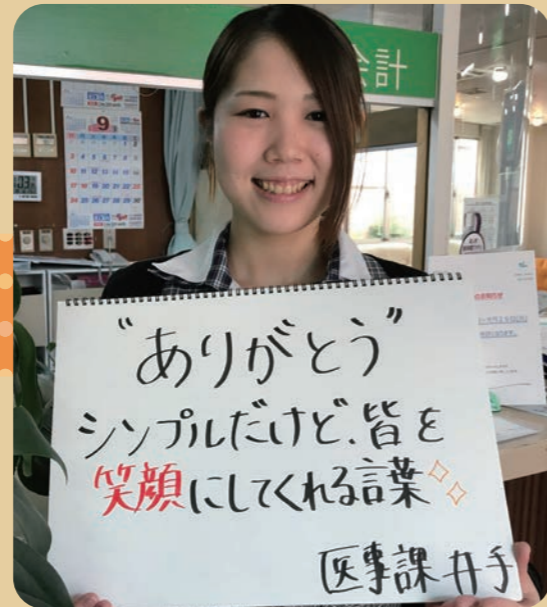 会計
9
"ありがとう"
シンプルだけど、皆を
笑顔にしてくれる言葉
医事課 井手